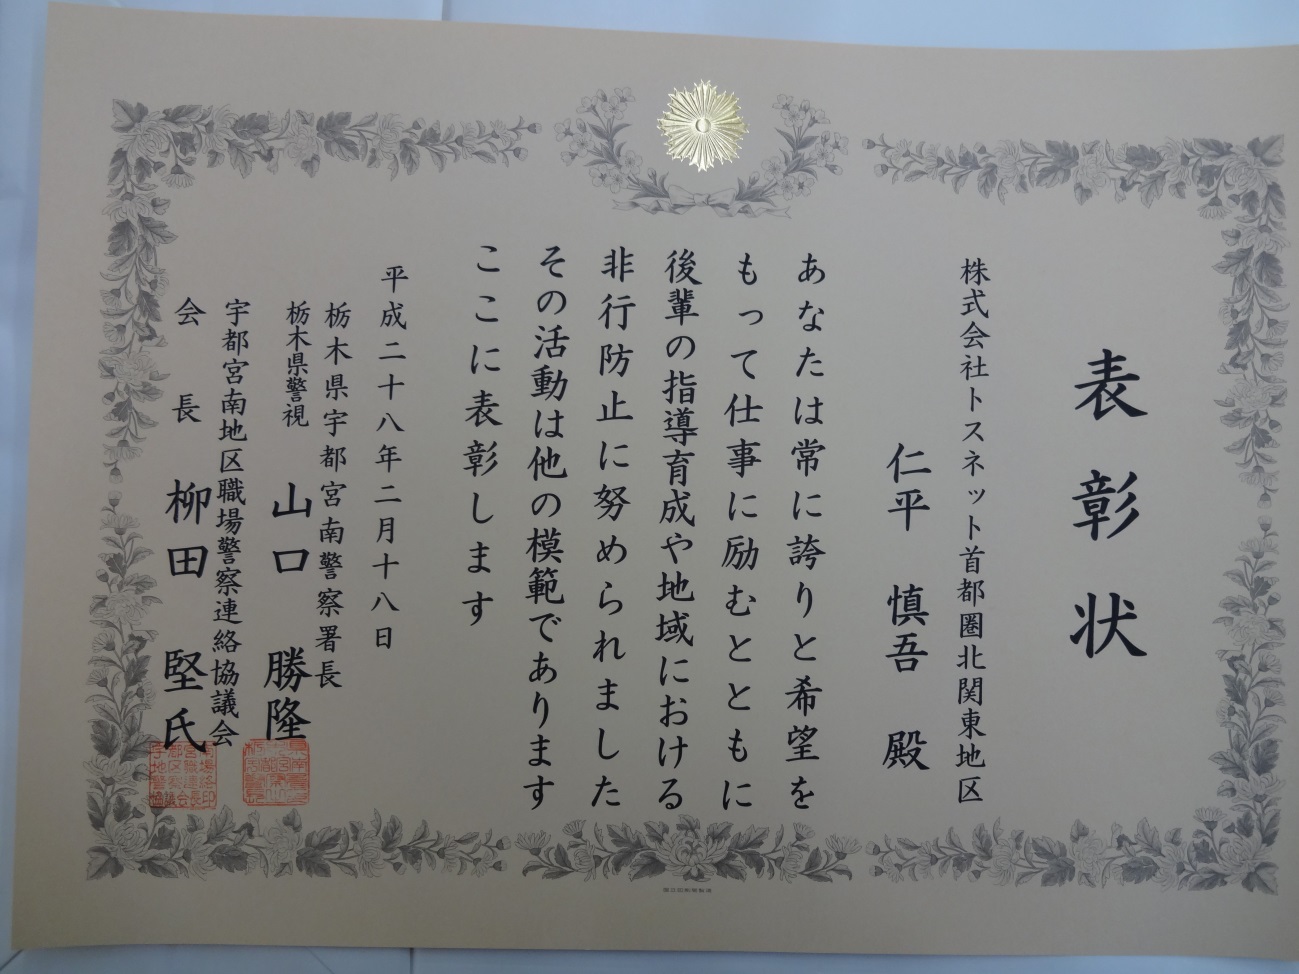 表彰状
株式会社トスネット首都圏北関東地区
仁平 慎吾 殿
あなたは常に誇りと希望を
もって仕事に励むとともに
後輩の指導育成や地域における
非行防止に努められました
その活動は他の模範であります
ここに表彰します
平成二十八年二月十八日
栃木県宇都宮南警察署長
栃木県警視 山口 勝隆
宇都宮南地区職場警察連絡協議会
会長 柳田 堅氏